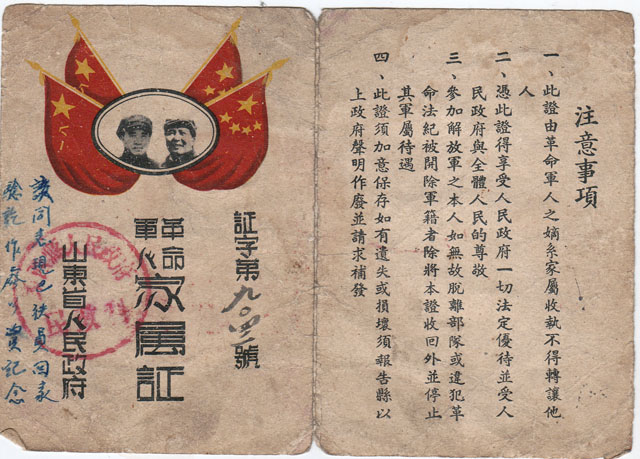 注意事項
一、此證由革命軍人之嫡系家屬收執不得轉讓他
人
二、憑此證得享受人民政府一切法定優待並受人
民政府與全體人民的尊敬
三、參加解放軍之本人如無故脫離部隊或違犯革
命法紀被開除軍籍者除將本證收回外並停止
其軍屬待遇
四、此證須加意保存如有遺失或損壞須報告縣以
上政府聲明作廢並請求補發
証字第九〇四號
革命軍人家屬証
山東省人民政府
人民政府
該同志現已員回家
作廢以資記念
八一